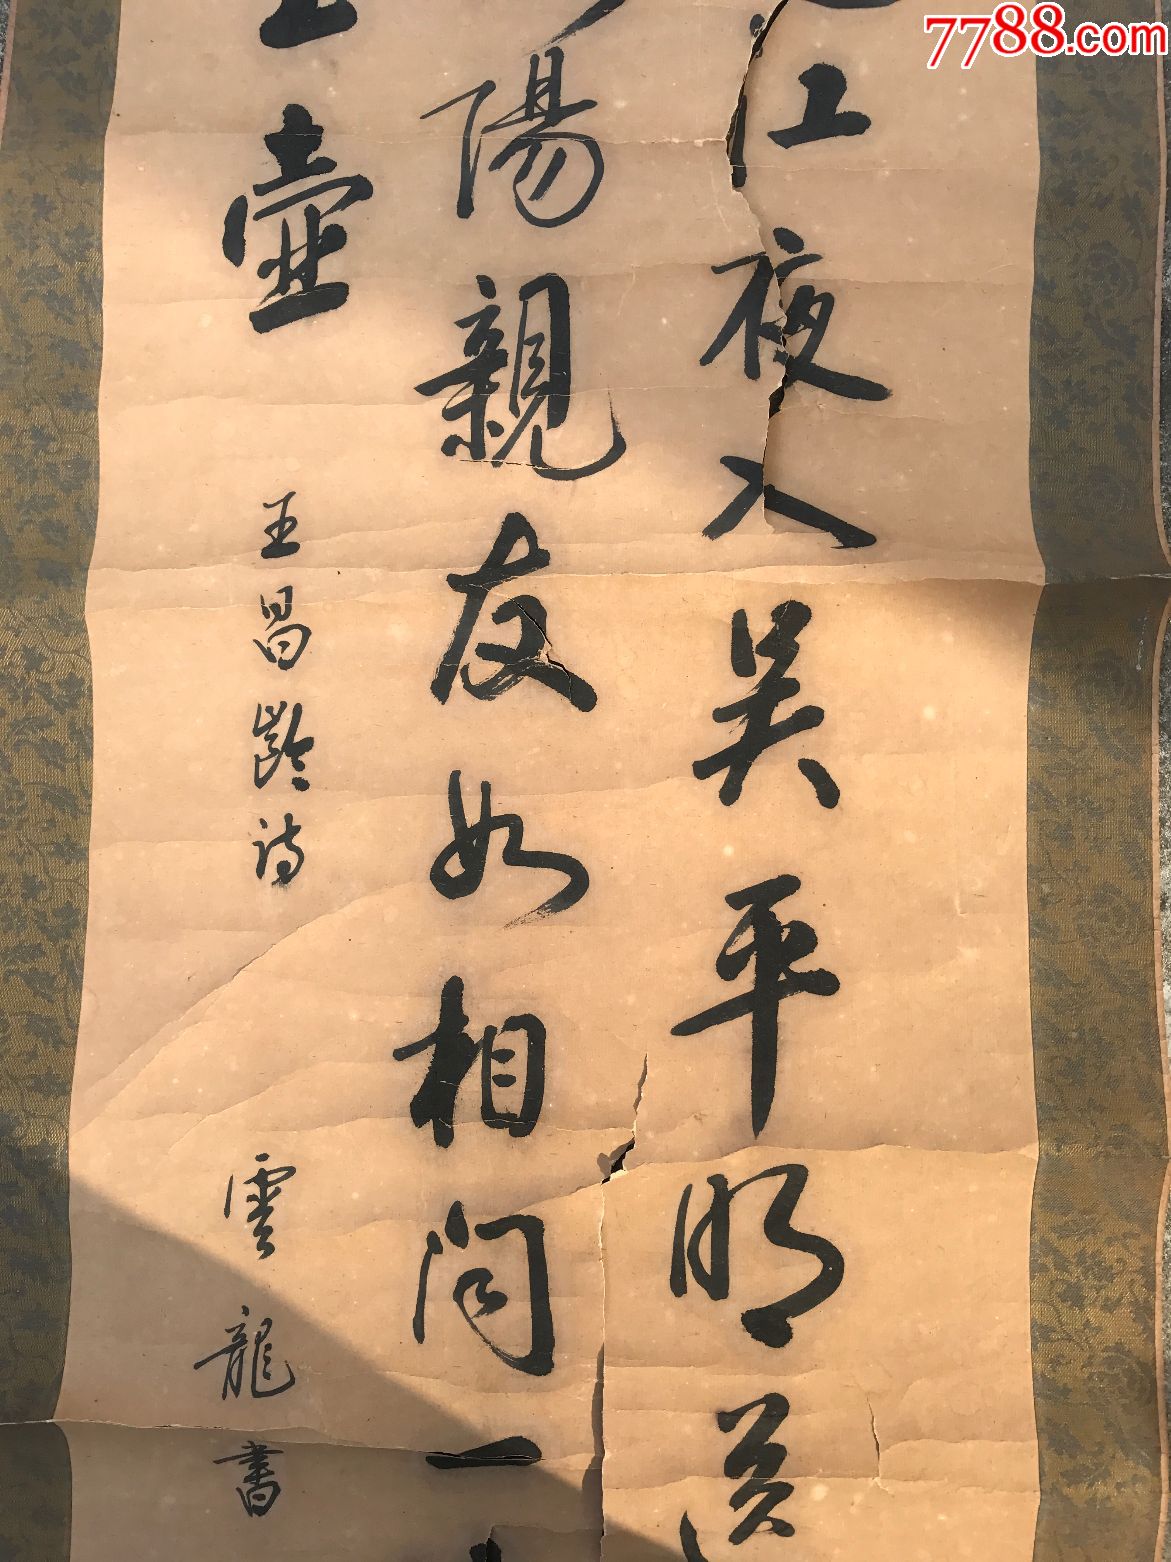 7788.com
江夜入吴平明送
陽親友如相问一
壺
王昌齡诗
雲龍書